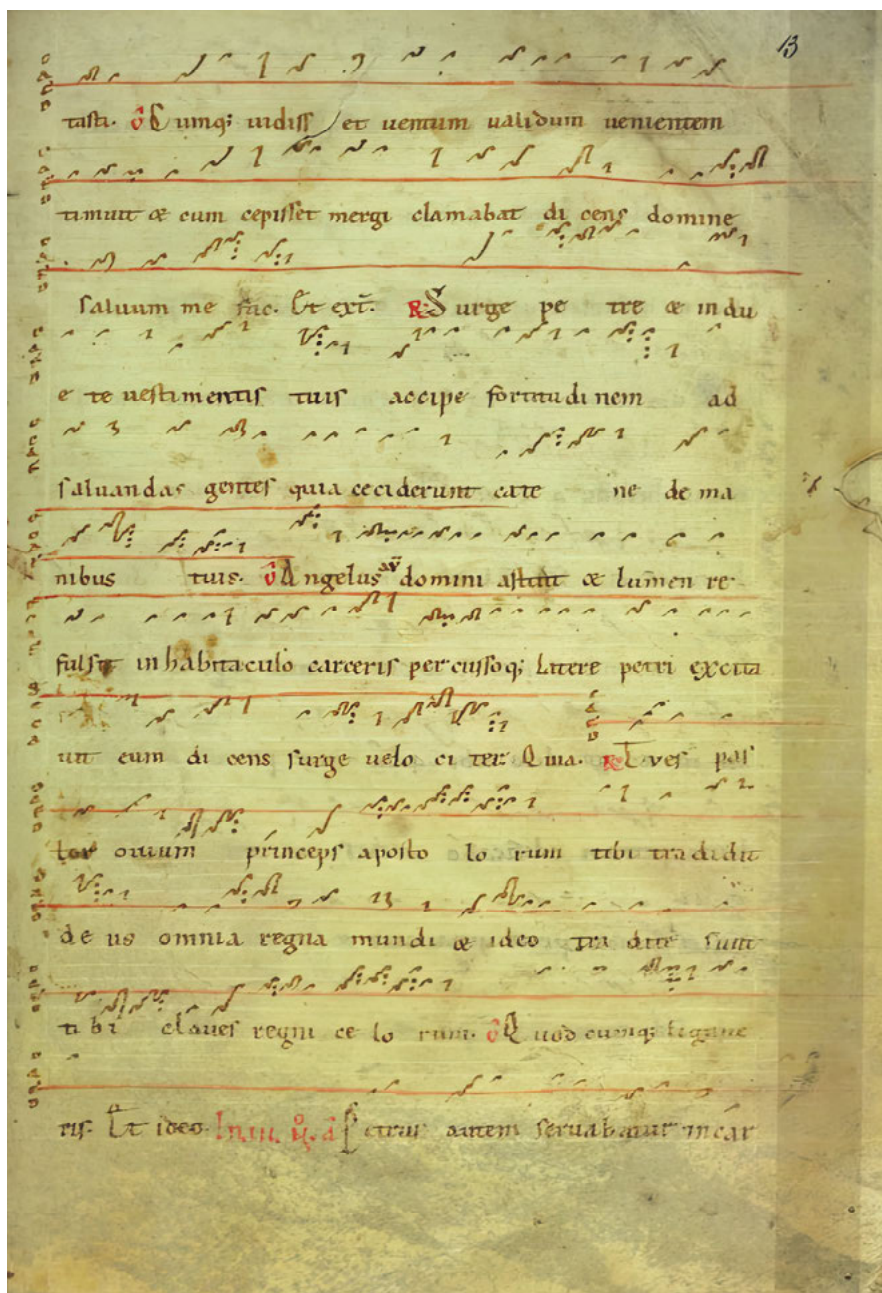 13
tasti. V Cumq; vidiss et ventum validum venientem
timuit & cum cepisset mergi clamabat di cens domine
salvum me fac. Et ext. R Surge pe tre & indu
e te vestimentis tuis accipe fortitudinem ad
salvandas gentes quia ceciderunt cate ne de ma
nibus tuis. V Angelus au domini astitit & lumen re
fulsit in habitaculo carceris percussoq; latere petri excita
vit eum di cens surge velo ci ter. Quia. R Tu es pas
tor ovium princeps aposto lo rum tibi tradidit
de us omnia regna mundi & ideo tra dite sunt
ti bi claves regni ce lo rum. V Quodcumq; ligave
ris. Et ideo. In iii. a Petrus autem servabatur in car